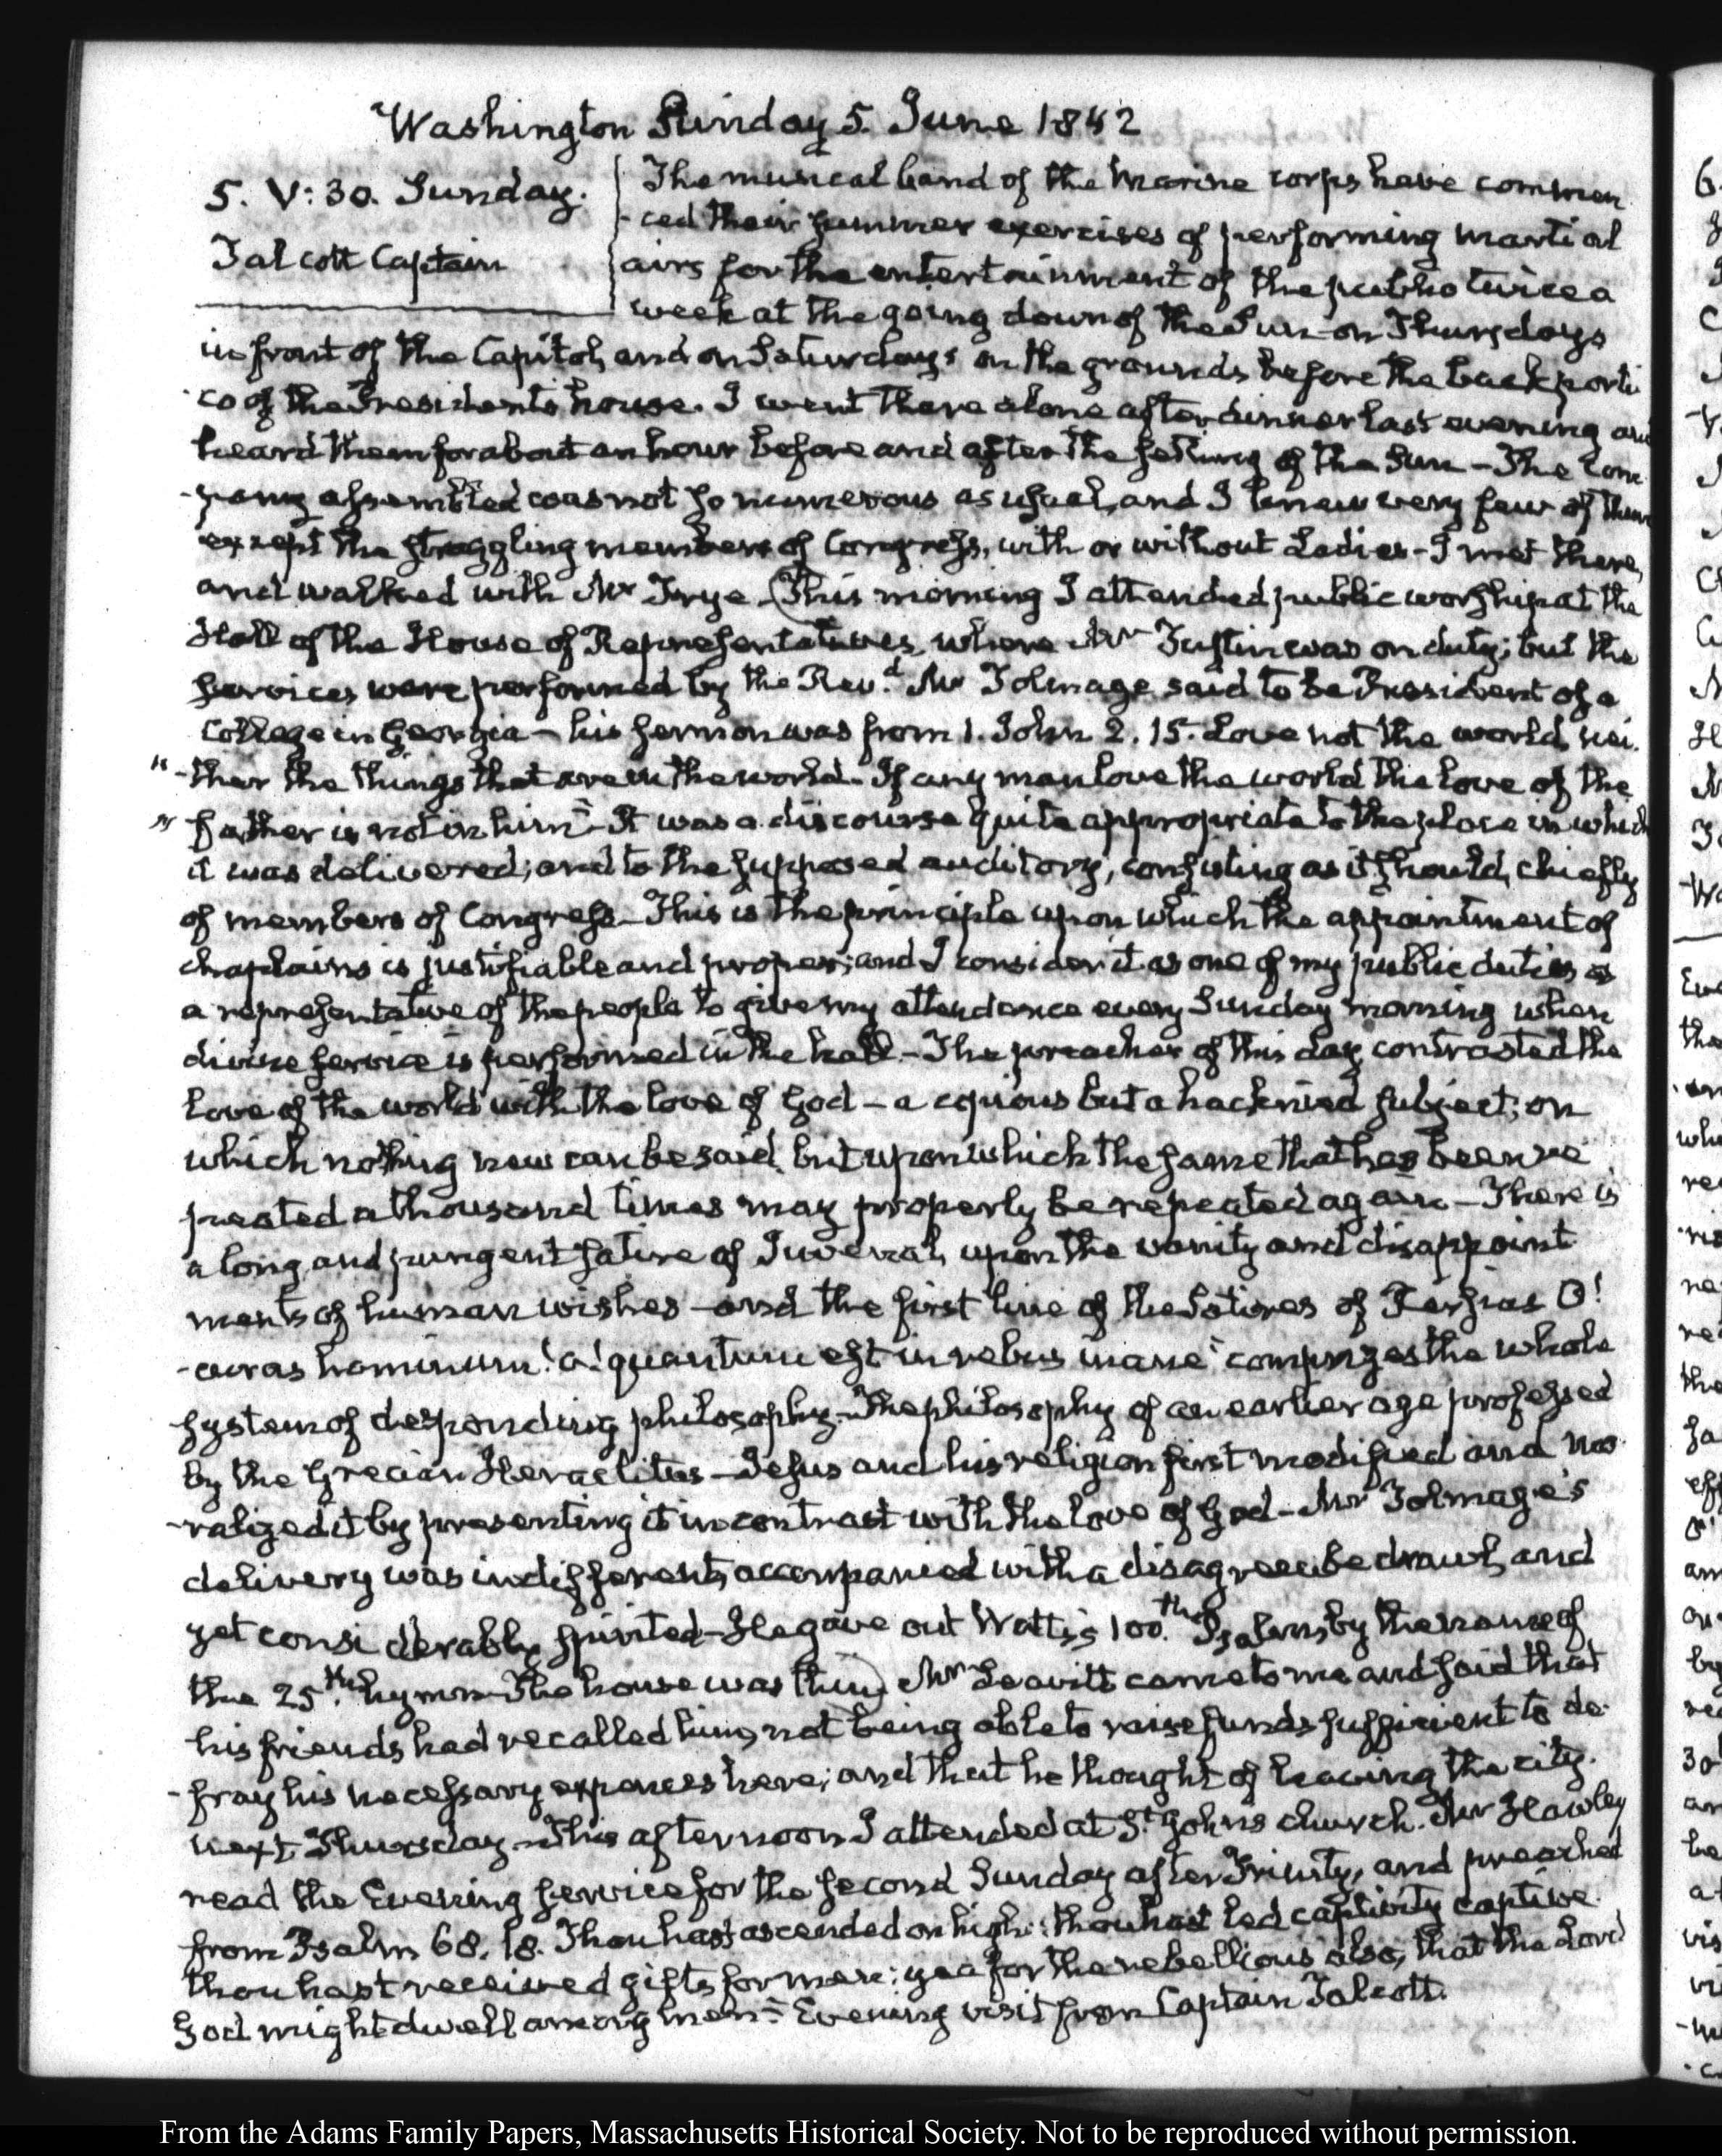 Washington Sunday 5. June 1842
5. V: 30. Sunday.
Talcott Captain
The musical band of the Marine corps have commen
-ced their summer exercises of performing martial
airs for the entertainment of the public twice a
week at the going down of the Sun on Thursdays
in front of the Capitol, and on Saturdays on the grounds before the back porti
-co of the President's house. I went there alone after dinner last evening and
heard them for about an hour before and after the setting of the Sun - The com
-pany assembled was not so numerous as usual, and I knew very few of them
except the straggling members of Congress, with or without Ladies - I met there,
and walked with Mr Frye - (This morning I attended public worship at the
Hall of the House of Representatives, where Mr Tustin was on duty; but the
services were performed by the Rev.d Mr Tolmage said to be President of a
College in Georgia - his sermon was from 1. John 2. 15. Love not the world, nei
"-ther the things that are in the world. If any man love the world the love of the
" father is not in him" - It was a discourse quite appropriate to the place in which
it was delivered; and to the supposed auditory, consisting as it should, chiefly
of members of Congress - This is the principle upon which the appointment of
chaplains is justifiable and proper; and I consider it as one of my public duties as
a representative of the people to give my attendance every Sunday morning when
divine service is performed in the hall - The preacher of this day contrasted the
love of the world with the love of God - a copious but a hacknied subject; on
which nothing new can be said, but upon which the same that has been re
peated a thousand times may properly be repeated again - There is
a long and pungent satire of Juvenal, upon the vanity and disappoint
ments of human wishes - and the first line of the Satires of Persius O!
-curas hominum! o! quantum est in rebus inane" comprizes the whole
system of desponding philosophy - The philosophy of an earlier age professed
by the Grecian Heraclitus - Jesus and his religion first modified and mo
-ralized it by presenting it in contrast with the love of God - Mr Tolmage's
delivery was indifferent, accompanied with a disagreeable drawl, and
yet considerably spirited - He gave out Watts's 100.th Psalm by the name of
the 25.th hymn - The house was thin) Mr Leavitt came to me and said that
his friends had recalled him, not being able to raise funds sufficient to de
-fray his necessary expences here; and that he thought of leaving the city
next Thursday - This afternoon I attended at St. Johns church. Mr Hawley
read the Evening service for the second Sunday after Trinity, and preached
from Psalm 68. 18. Thou hast ascended on high: thou hast led captivity captive
thou hast received gifts for men: yea for the rebellious also, that the Lord
God might dwell among them" - Evening visit from Captain Talcott.
From the Adams Family Papers, Massachusetts Historical Society. Not to be reproduced without permission.